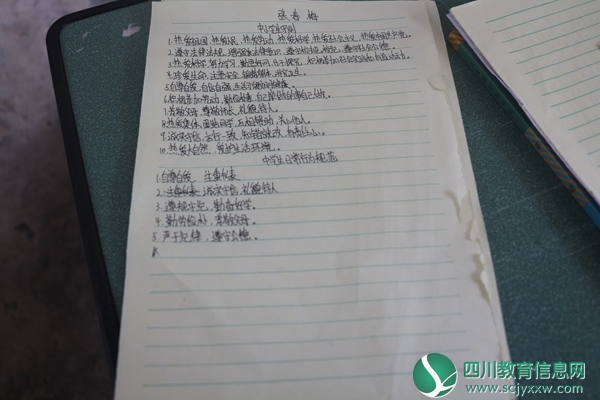 张春梅
中小学生守则
1.热爱祖国,热爱人民,热爱劳动,热爱科学,热爱社会主义,热爱中国共产党。
2.遵守法律法规,增强法律意识,遵守校规校纪,遵守社会公德。
3.热爱科学,努力学习,勤思好问,乐于探究,积极参加社会实践和有益的活动。
4.珍爱生命,注意安全,锻炼身体,讲究卫生。
5.自尊自爱,自信自强,生活习惯文明健康。
6.积极参加劳动,勤俭朴素,自己能做的事自己做。
7.孝敬父母,尊敬师长,礼貌待人。
8.热爱集体,团结同学,互相帮助,关心他人。
9.诚实守信,言行一致,知错就改,有责任心。
10.热爱大自然,爱护生活环境。
中学生日常行为规范
1.自尊自爱,注重仪表
2.诚实守信,礼貌待人
3.遵规守纪,勤奋好学。
4.勤劳俭朴,孝敬父母。
5.严于律己,遵守公德。
四川教育信息网
www.scjyxxw.com